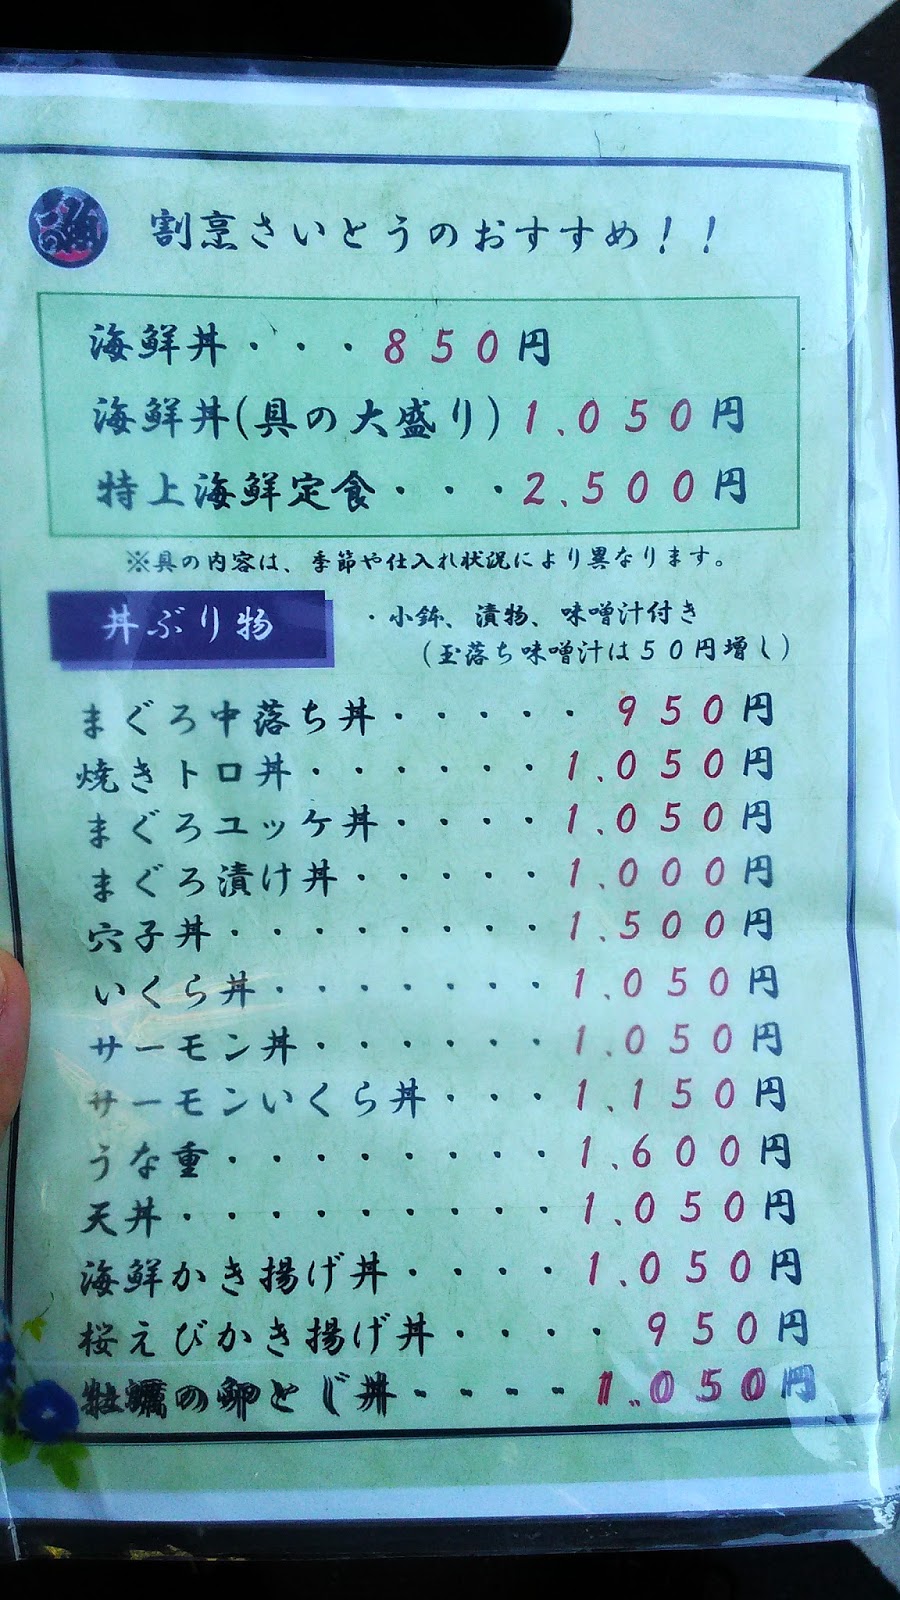 割烹さいとうのおすすめ！！
海鮮丼・・・850円
海鮮丼(具の大盛り)1,050円
特上海鮮定食・・・2,500円
※具の内容は、季節や仕入れ状況により異なります。
丼ぶり物
・小鉢、漬物、味噌汁付き
（玉落ち味噌汁は５０円増し）
まぐろ中落ち丼・・・・・950円
焼きトロ丼・・・・・・1,050円
まぐろユッケ丼・・・・1,050円
まぐろ漬け丼・・・・・1,000円
穴子丼・・・・・・・・1,500円
いくら丼・・・・・・・1,050円
サーモン丼・・・・・・1,050円
サーモンいくら丼・・・1,150円
うな重・・・・・・・・1,600円
天丼・・・・・・・・・1,050円
海鮮かき揚げ丼・・・・1,050円
桜えびかき揚げ丼・・・・950円
牡蠣の卵とじ丼・・・・1,050円